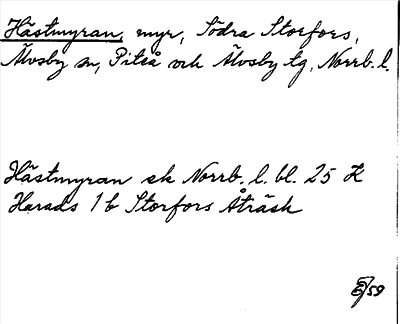 Hästmyran, myr, Södra Storfors,
Älvsby sn, Piteå och Älvsby tg, Norrb. l.
Hästmyran ek Norrb. l. bl. 25 K
Harads 1 b Storfors Åträsk
/59